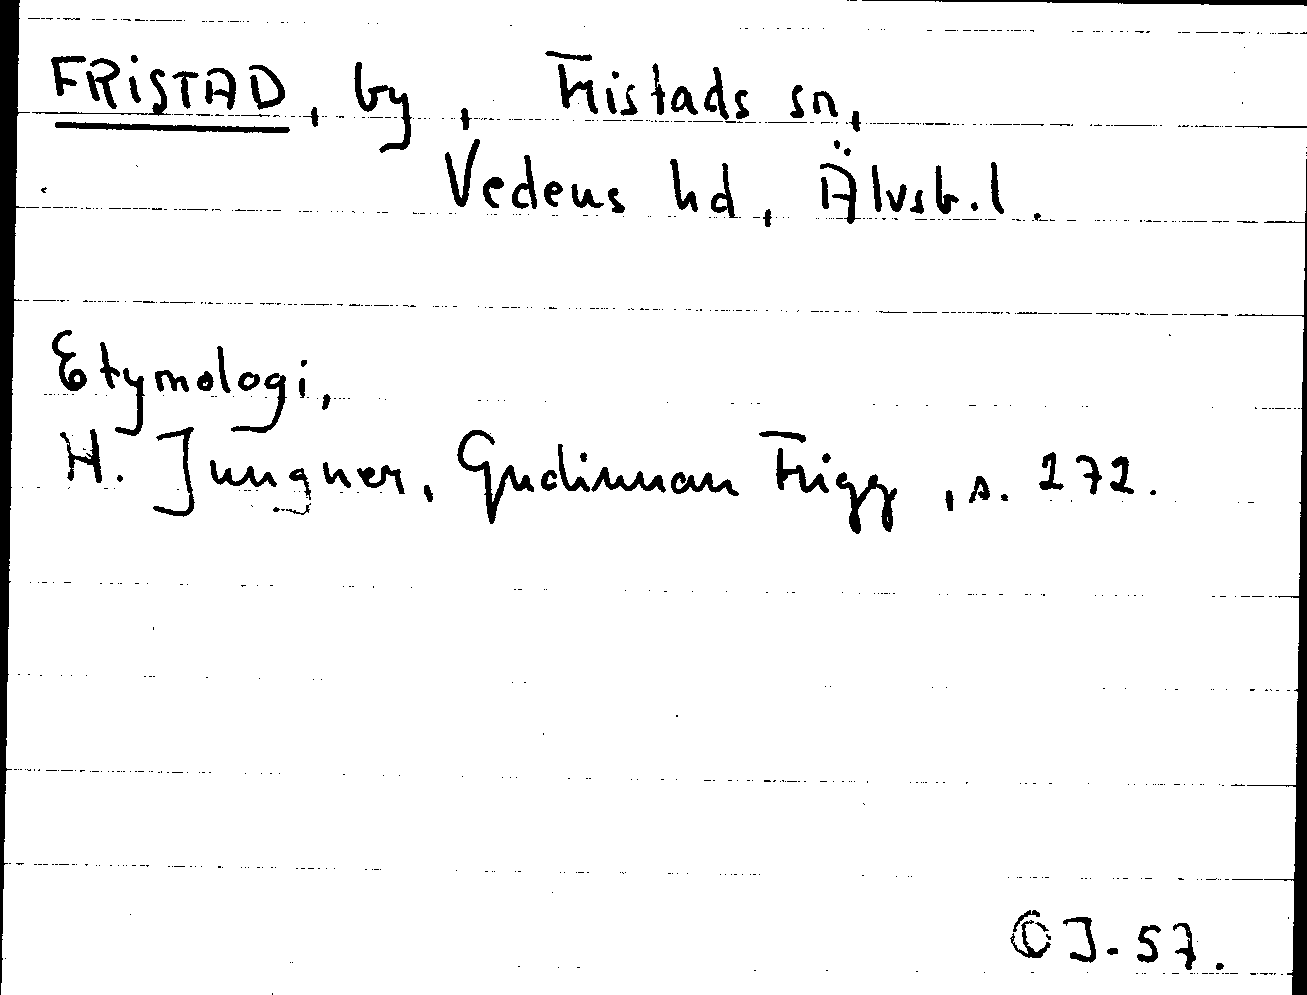 FRISTAD, by, Fristads sn,
Vedens hd, Älvsb. l.
Etymologi,
H. Jungner, Gudinnan Frigg, s. 272.
J-57.